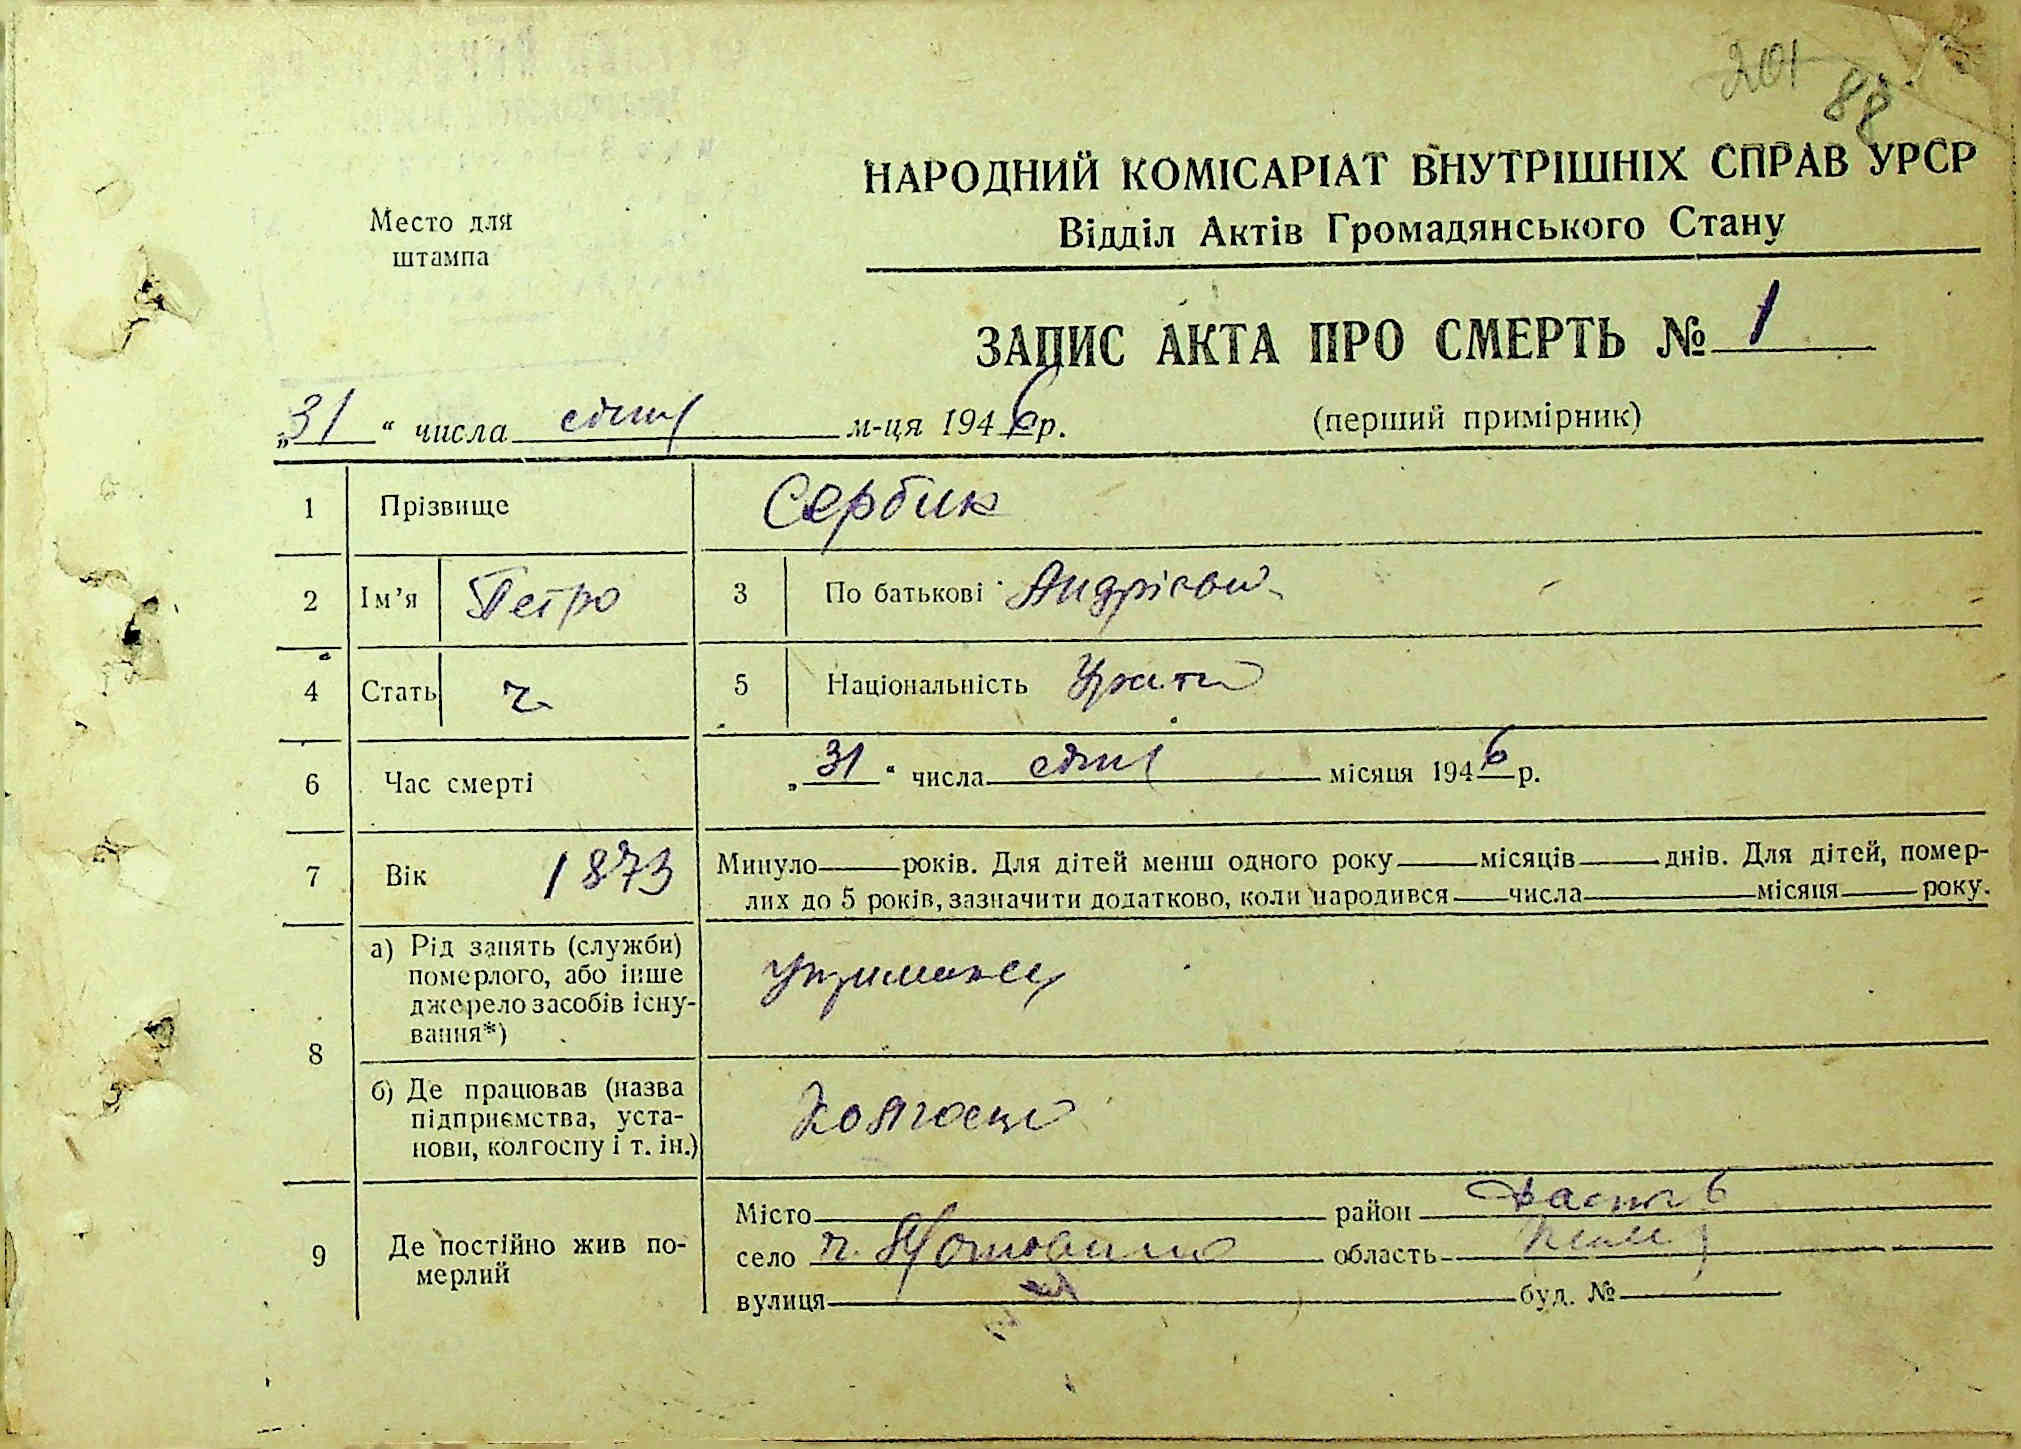 201 88
НАРОДНИЙ КОМІСАРІАТ ВНУТРІШНІХ СПРАВ УРСР
Відділ Актів Громадянського Стану
Место для
штампа
ЗАПИС АКТА ПРО СМЕРТЬ № 1
„31“ числа січня м-ця 1946 р. (перший примірник)
1 Прізвище Сербин
2 Ім’я Петро 3 По батькові Андрієвич
4 Стать ч. 5 Національність
6 Час смерті „31“ числа січня місяця 1946 р.
7 Вік 1873 Минуло років. Для дітей менш одного року місяців днів. Для дітей, помер-
лих до 5 років, зазначити додатково, коли народився числа місяця року.
8 а) Рід занять (служби)
померлого, або інше
джерело засобів існу-
вання*)
утриманец
б) Де працював (назва
підприємства, уста-
нови, колгоспу і т. ін.)
колгосп
9 Де постійно жив по-
мерлий
Місто район Фастів
село область Київ
вулиця буд. №